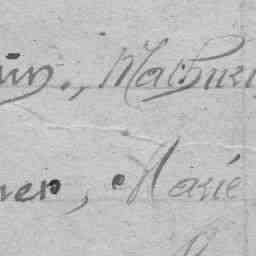 uin., Mathuri
ner, Marie